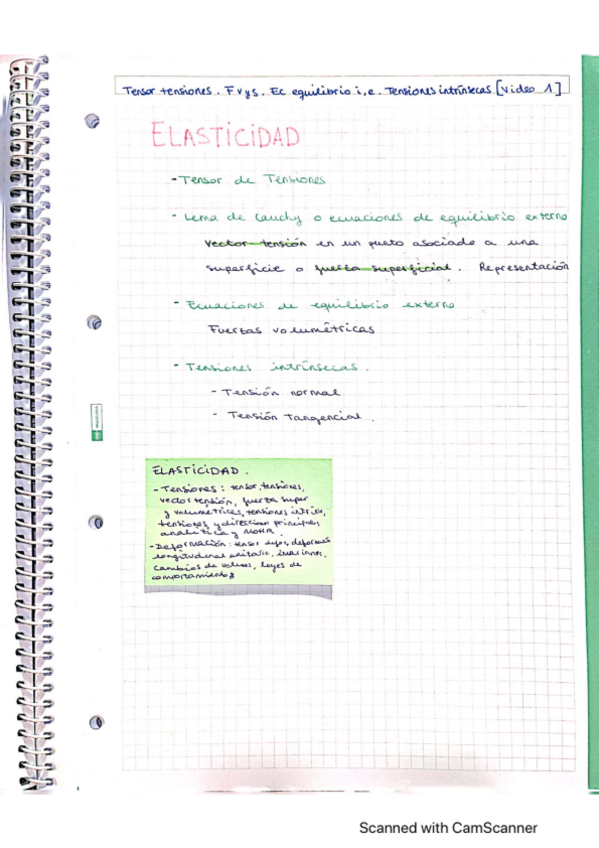 Tensor tensiones. F v y s. Ec equilibrio i, e. Tensiones intrínsecas [Video 1]
ELASTICIDAD
- Tensor de Tensiones
- Lema de Cauchy o ecuaciones de equilibrio externo
Vector tensión en un punto asociado a una
superficie o fuerza superficial. Representación
- Ecuaciones de equilibrio externo
Fuerzas volumétricas
- Tensiones intrínsecas.
- Tensión normal
- Tensión tangencial.
ELASTICIDAD.
- Tensiones: tensor, tensiones,
vector tensión, fuerza super
y volumetrices, tensiones intrins,
tensiones y direccion principales,
analitica y MOHR.
- Deformación: tensor defor, deformas
longitudinal unitaria,
cambios de volumen, leyes de
comportamiento
Scanned with CamScanner